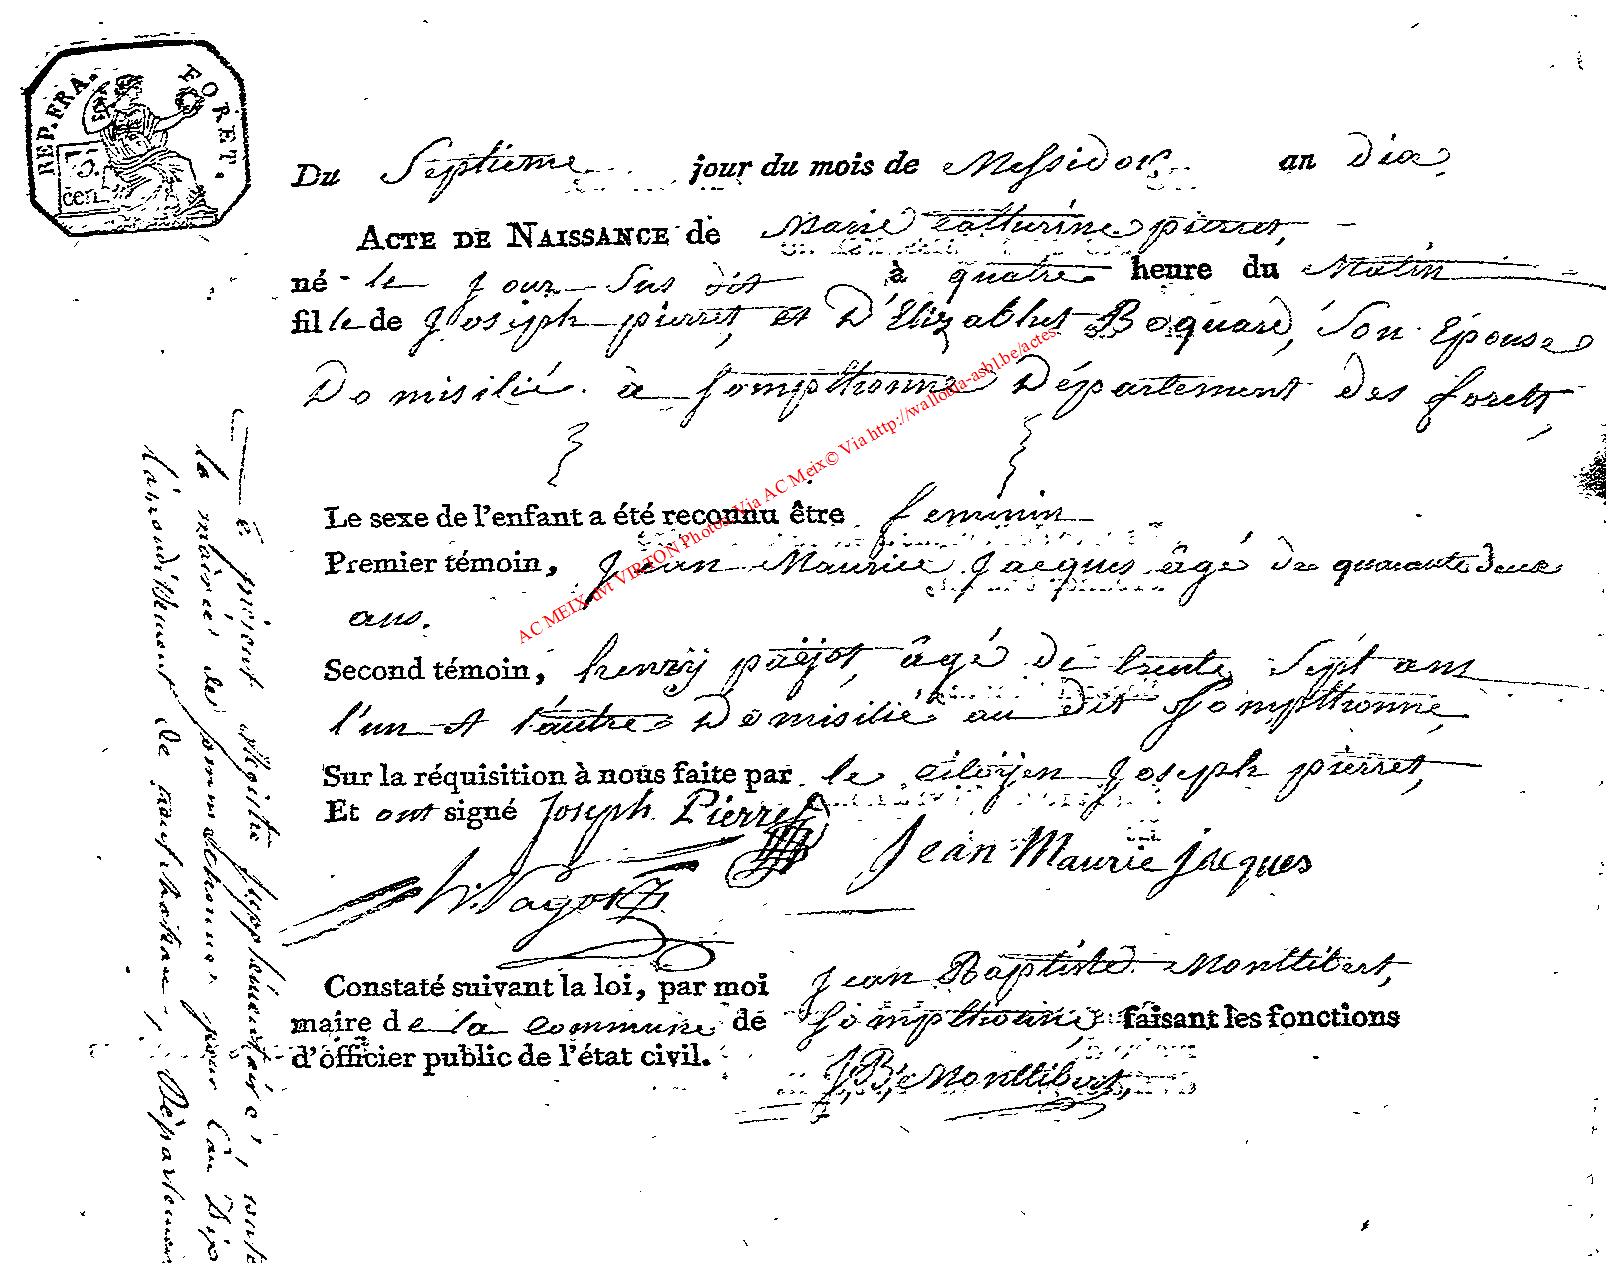 REP. FRA. FORET.
75. cen.
Du Septieme jour du mois de Messidor an dix
ACTE DE NAISSANCE de Marie Catturine pierret,
né le jour Sus dit à quatre heure du Matin
fille de Joseph pierret, et D'Elizabhet Boquard, Son Epouse
Domisilié à Sompthonne Département des forets,
Le sexe de l'enfant a été reconnu être feminin
Premier témoin, Jean Maurice Jacques âgé de quarante deux
ans.
Second témoin, henry pajot, âgé de trente Sept ans
l'un et l'autre Domisilié au dit Sompthonne,
Sur la réquisition à nous faite par le citoyen Joseph pierret,
Et ont signé Joseph Pierret
Jean Maurie Jacques
h. Pagot
Constaté suivant la loi, par moi Jean Baptiste Monttibert,
maire de la commune de Sompthonne faisant les fonctions
d'officier public de l'état civil.
JBte Monttibert,
présent Régistre supplémentaire,
la mairie de pour l'an Dix
l'arrondissement de neufchateau, Département
AC MEIX dvt VIRTON Photos Via AC Meix© Via http://wallonia-asbl.be/actes